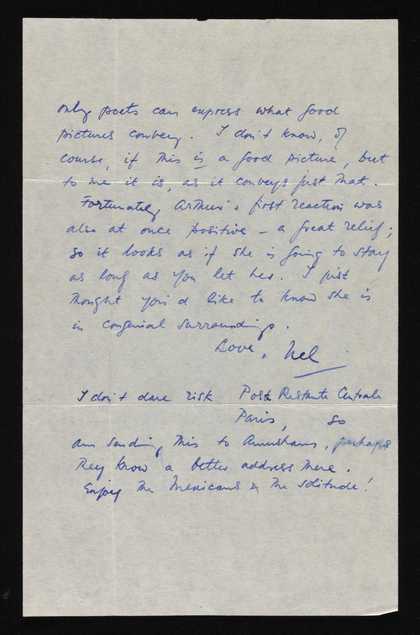 only poets can express what good
pictures convey. I don't know, of
course, if this is a good picture, but
to me it is, as it conveys just that.
Fortunately Arthur's first reaction was
also at once positive – a great relief;
so it looks as if she is going to stay
as long as you let her. I just
thought you'd like to know she is
in congenial surroundings.
Love, Nel
I don't dare risk Poste Restante Centrale
Paris, so
am sending this to Amersham, perhaps
they know a better address there.
Enjoy the Mexicans & the solitude!